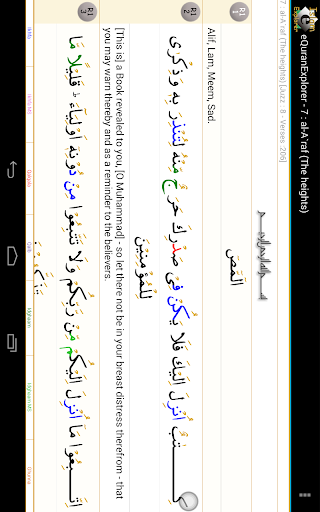 eQuranExplorer - 7 : al-A'raf (The heights)
7 : al-A'raf (The heights) [Juzz : 8 - Verses: 206]
الٓمٓصٓ
R1
Alif, Lam, Meem, Sad.
R1 2
كِتٰبٌ اُنْزِلَ اِلَيْكَ فَلَا يَكُنْ فِىْ صَدْرِكَ حَرَجٌ مِّنْهُ لِتُنْذِرَ بِهٖ وَذِكْرٰى
لِلْمُؤْمِنِيْنَ
[This is] a Book revealed to you, [O Muhammad] - so let there not be in your breast distress therefrom - that
you may warn thereby and as a reminder to the believers.
R1 3
اِتَّبِعُوْا مَاۤ اُنْزِلَ اِلَيْكُمْ مِّنْ رَّبِّكُمْ وَلَا تَتَّبِعُوْا مِنْ دُوْنِهٖۤ اَوْلِيَآءَ ؕ قَلِيْلًا مَّا
Ikhfa Ikhfa MS Qalqala Qalb Idghaam Idghaam MS Ghunna